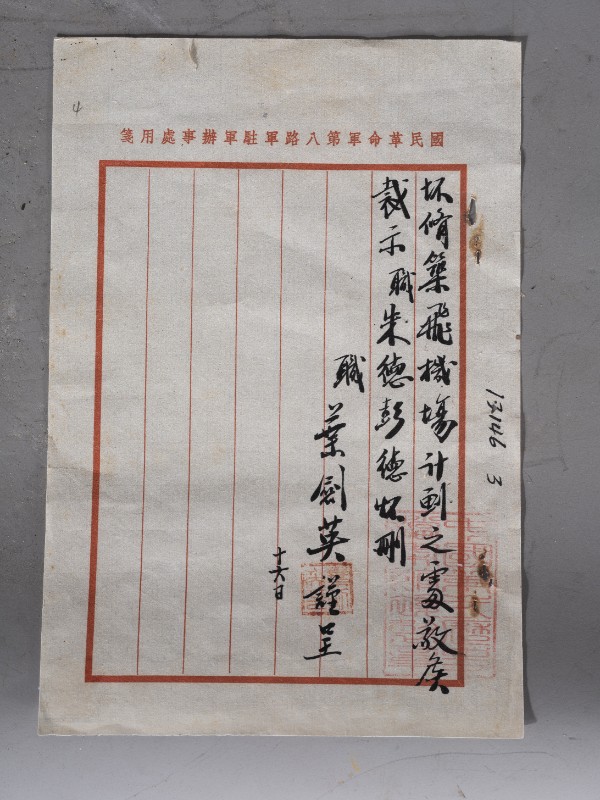 4
國民革命軍第八路軍駐軍辦事處用箋
坏脩築飛機場計劃之處敬候
裁示 職朱德彭德怀刪
職 葉劍英 謹呈
十六日
12146 3